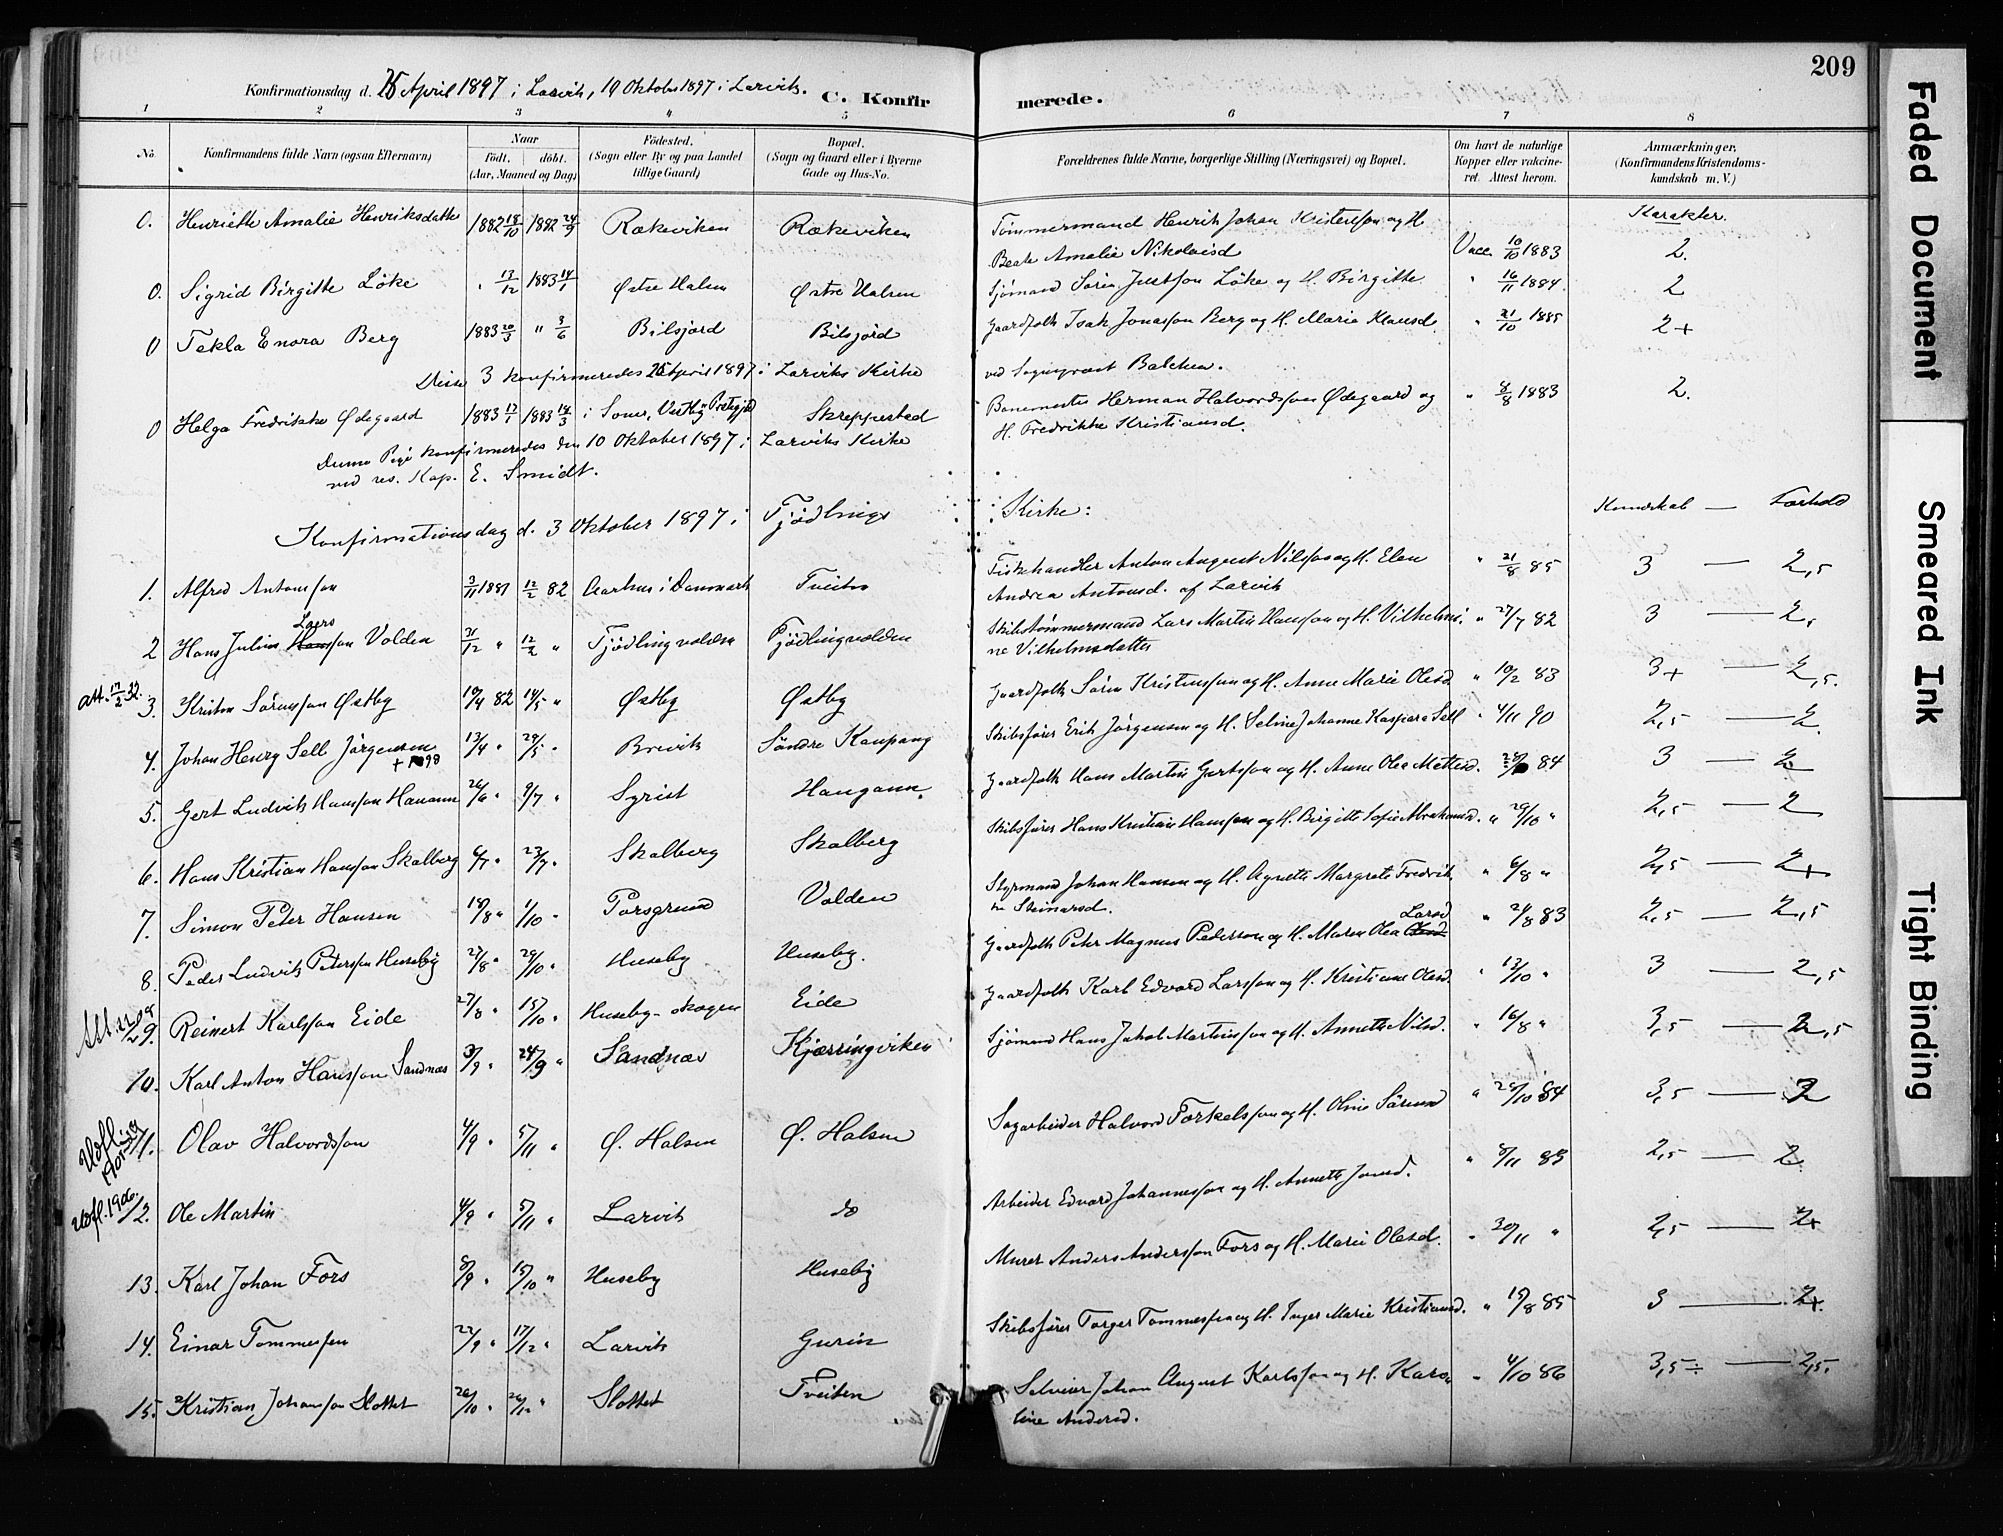 209
Konfirmationsdag d. 25 April 1897 i Larvik, 10 Oktober 1897 i Larvik. C. Konfirmerede.
1 2 3 4 5 6 7 8
No. Konfirmandens fulde Navn (ogsaa Efternavn) Naar født. døbt. (Aar, Maaned og Dag) Fødested. (Sogn eller By og paa Landet tillige Gaard) Bopæl. (Sogn og Gaard eller i Byerne Gade og Hus-No. Forældrenes fulde Navne, borgerlige Stilling (Næringsvei) og Bopæl. Om havt de naturlige Kopper eller vakcineret. Attest herom. Anmærkninger. (Konfirmandens Kristendomskundskab m. V.)
Karakter.
0. Henriette Amalie Henriksdatter 1882 18/10 1882 24/9 Rækeviken Rækeviken Tømmermand Henrik Johan Kristenson og H.
Beate Amalie Nikolaisd Vacc. 10/10 1883 2.
0. Sigrid Birgitte Löke " 13/12 1883 14/1 Østre Halsen Østre Halsen Sjømand Sörin Justson Löke og H. Birgitte " 16/11 1884. 2
0 Tekla Enora Berg 1883 20/3 " 3/6 Bilsjord Bilsjord Gaardfolk Isak Jonasson Berg og H. Maria Klausd. " 21/10 1885 2+
Disse 3 konfirmeredes 25 April 1897 i Larviks Kirke ved Sogneprest Balchen.
0 Helga Fredrikke Ødegaard 1883 17/1 1883 18/3 i Soner, Vestby Prstgjld Skreppestad Banemester Herman Halvordsson Ødegaard og " 8/8 1883 2.
H. Fredrikke Kristiansd.
Denne Pige konfirmeredes den 10 Oktober 1897 i Larviks Kirke
ved res. Kap. E. Smidt.
Konfirmationsdag d. 3 Oktober 1897 i Tjödlings Kirke: Kundskab — Forhold
1. Alfred Antonson 3/11 1881 12/2 82 Aarhus i Danmark Tveiten Fiskehandler Anton August Nilsson og H. Elen " 21/8 85 3 — 2,5
Andrea Antonsd. af Larvik
2 Hans Julius Larsson Volden 31/12 " 12/2 " Tjødlingvolden Tjødlingvolden Skibstømmermand Lars Martin Hansson og H. Vilhelmi- " 27/7 82 3 — 2,
ne Vilhelmsdatter
Att. 17/2 32.
3. Kristen Sörensson Østby 10/4 82 14/5 " Østby Østby Gaardfolk Sören Kristensson og H. Anne Marie Olesd. " 10/2 83 3+ — 2,5.
4. Johan Henry Sell Jörgensen 13/4 " 29/5 " Brevik Söndre Kaupang Skibsfører Erik Jörgensen og H. Seline Johanne Kaspara Sell " 4/11 90 2,5 — 2
5. Gert Ludvik Hansson Haugann 26/6 " 9/7 " Syrist Haugann. Gaardfolk Hans Martin Gertsson og H. Anne Olea Mettesd. 84 3 — 2
6. Hans Kristian Hansson Skalberg 6/7 " 23/7 " Skalberg Skalberg Skibsfører Hans Kristian Hansson og H. Birgitte Sofie Abrahamsd. " 29/10 " 2,5 — 2
7. Simon Peter Hansen 18/8 " 1/10 " Porsgrund Volden Styrmand Johan Hansen og H. Agnethe Margrete Fredrik- " 6/8 " 2,5 — 2+
ke Steinarsd.
8. Peder Ludvik Petersson Huseby 27/8 " 29/10 " Huseby Huseby. Gaardfolk Peter Magnus Pedersson og H. Maren Olea Larsd " 24/8 83 2,5 — 2,5
Att. 22/2 08
9. Reinert Karlsson Eide 27/8 " 15/10 " Huseby-skogen Eide Gaardfolk Karl Edvard Larsson og H. Kristiane Olesd. " 13/10 " 3 — 2,5
10. Karl Anton Hansson Sandnæs 3/9 " 24/9 " Sandnæs Kjærringviken Sjømand Hans Jakob Martinsson og H. Annette Nilsd. " 16/8 " 3,5 — 2,5
11. Olav Halvordsson 4/9 " 5/11 " Ø. Halsen Ø. Halsen Sagarbeider Halvord Torkelsson og H. Oline Sörensd " 28/10 84 3,5 — 2
Udfl. 1906.
12. Ole Martin 4/9 " 5/11 " Larvik do Arbeider Edvard Johannesson og H. Annette Jonsd. " 8/11 83 2,5 — 2
13. Karl Johan Fors 8/9 " 15/10 " Huseby Huseby Murer Anders Andersson Fors og H. Marie Olesd. " 30/11 " 2,5 — 2+
14. Einar Tommessen 22/9 " 17/12 " Larvik Gurin Skibsfører Torger Tommessen og H. Inger Marie Kristiansd. " 15/8 85 3 — 2+
15. Kristian Johansson Slottet 26/10 " 26/12 " Slottet Tveiten Selveier Johan August Karlsson og H. Karo- " 4/10 86 3,5÷ — 2,5.
line Andersd.
Faded Document
Smeared Ink
Tight Binding